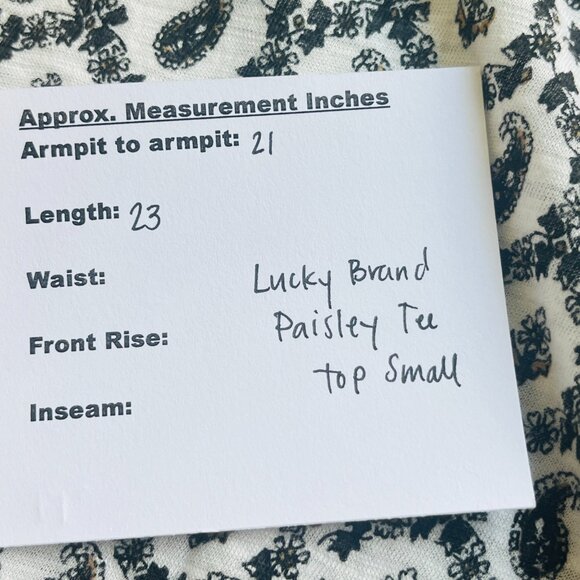 Approx. Measurement Inches
Armpit to armpit: 21
Length: 23
Waist:
Lucky Brand
Front Rise:
Paisley Tee
top Small
Inseam: